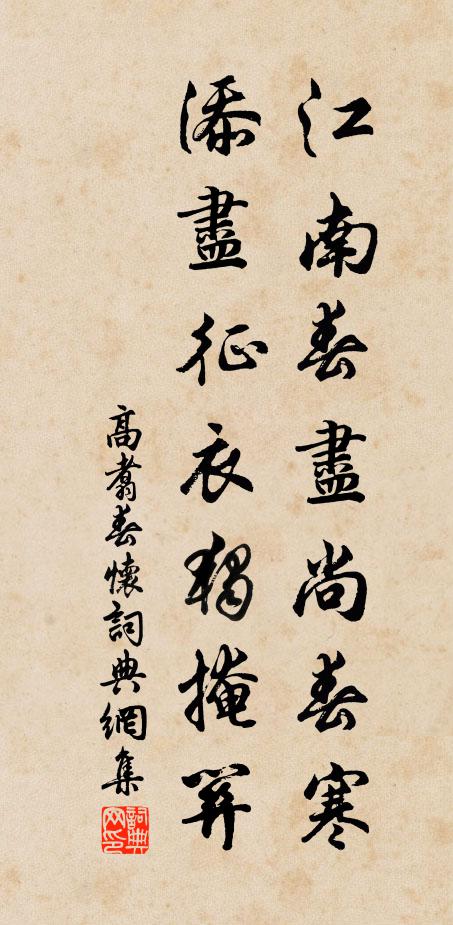 江南春盡尚春寒
添盡征衣獨掩關
高翥春懷詞典網集
詞典网印